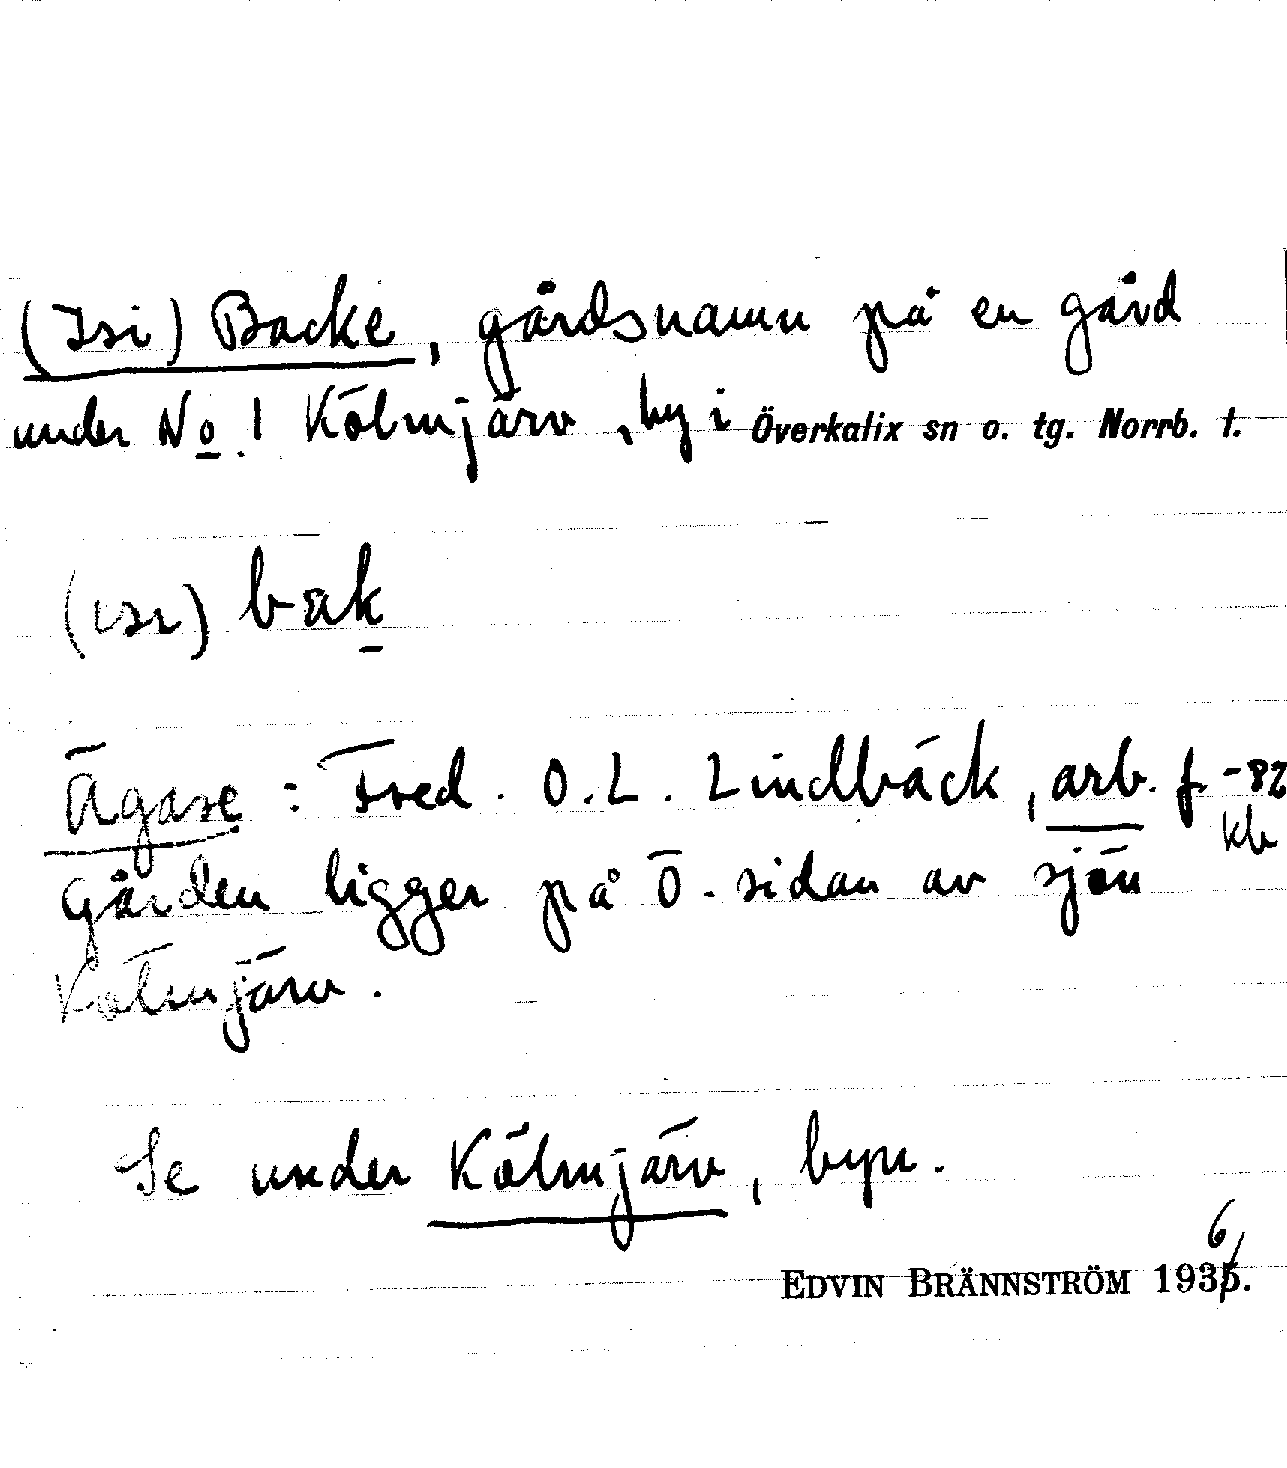 (Isi) Backe, gårdsnamn på en gård
under No. 1 Kölmjärv, by i Överkalix sn o. tg. Norrb. l.
(ısı) bak
Ägare: Fred. O. L. Lindbäck, arb. f. -82
kb
Gården ligger på Ö-sidan av sjön
Kölmjärv.
Se under Kölmjärv, byn.
6
EDVIN BRÄNNSTRÖM 1935.